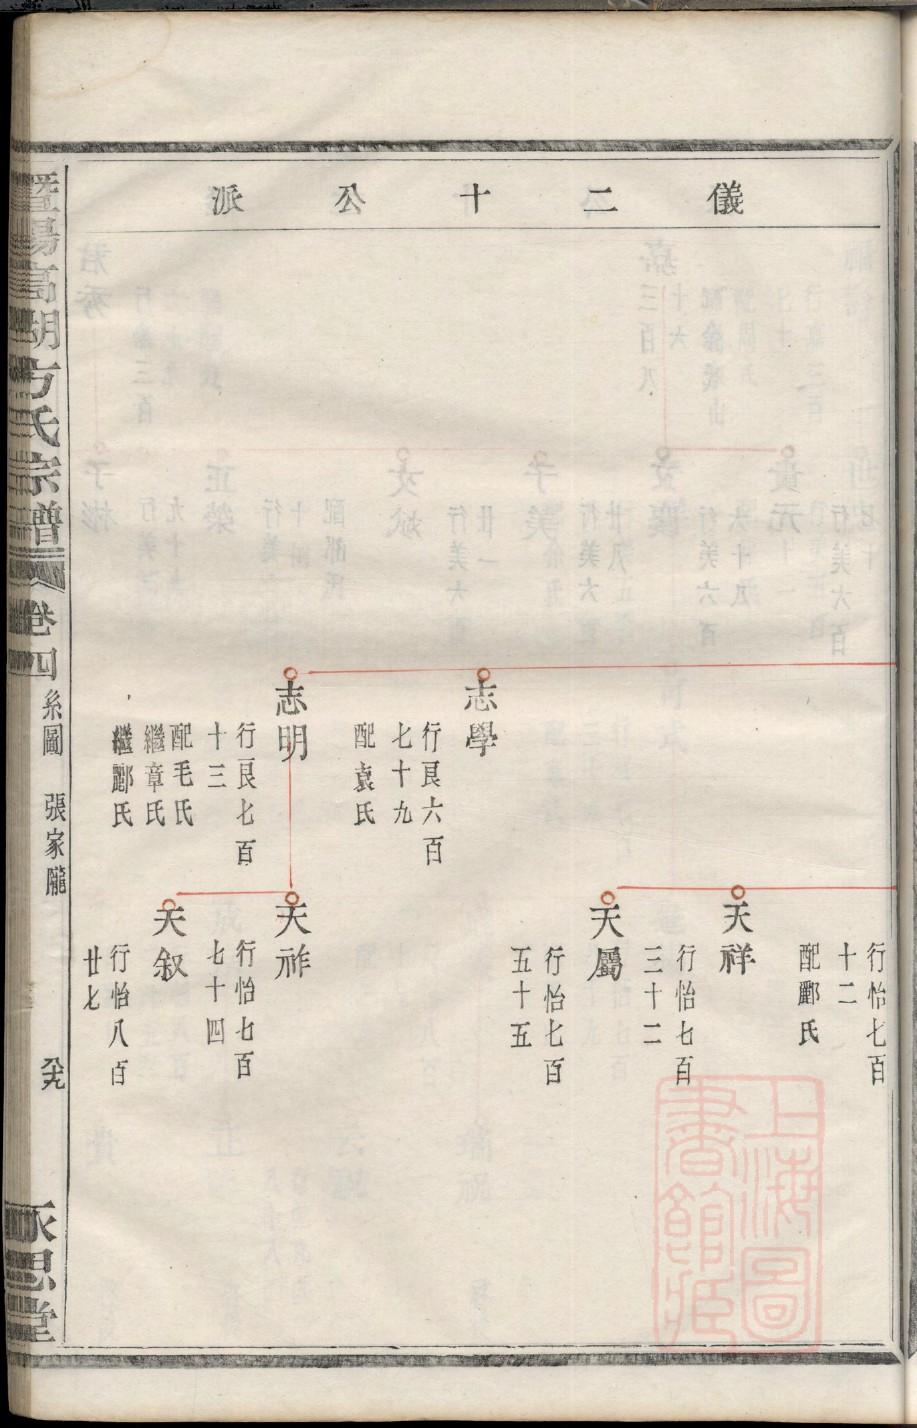 儀二十公派
志學
行艮六百
七十九
配袁氏
志明
行艮七百
十三
配毛氏
繼章氏
繼酈氏
行怡七百
十二
配酈氏
天祥
行怡七百
三十二
天屬
行怡七百
五十五
天祚
行怡七百
七十四
天叙
行怡八百
廿七
暨陽高湖方氏宗譜
卷四
系圖
張家隴
永思堂
上海圖書館藏